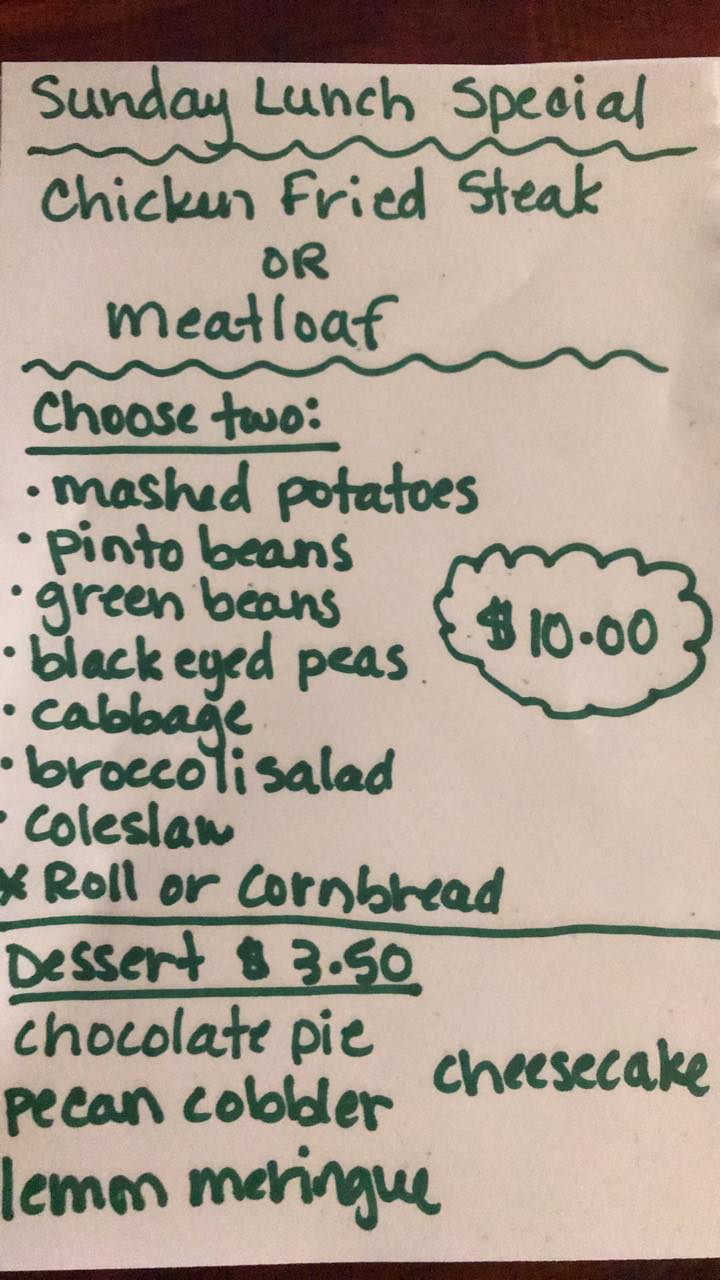 Sunday Lunch Special
Chicken Fried Steak
OR
Meatloaf
Choose two:
• mashed potatoes
• pinto beans
• green beans
$10.00
• black eyed peas
• cabbage
• broccoli salad
• coleslaw
* Roll or Cornbread
Dessert $3.50
chocolate pie
cheesecake
pecan cobbler
lemon meringue